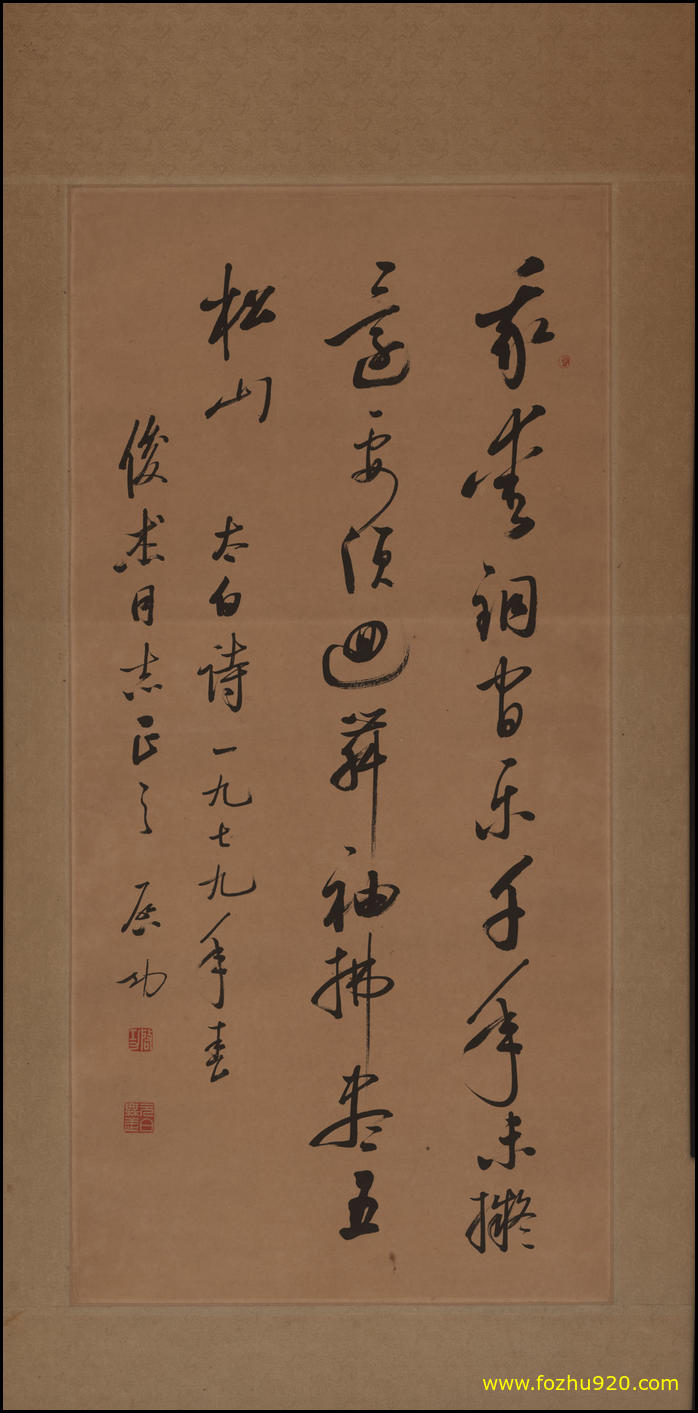 我爱铜官乐千年未拟
还要须回舞袖拂尽五
松山
太白诗一九七九年春
俊杰同志正之 启功
启功
元白無恙
www.fozhu920.com